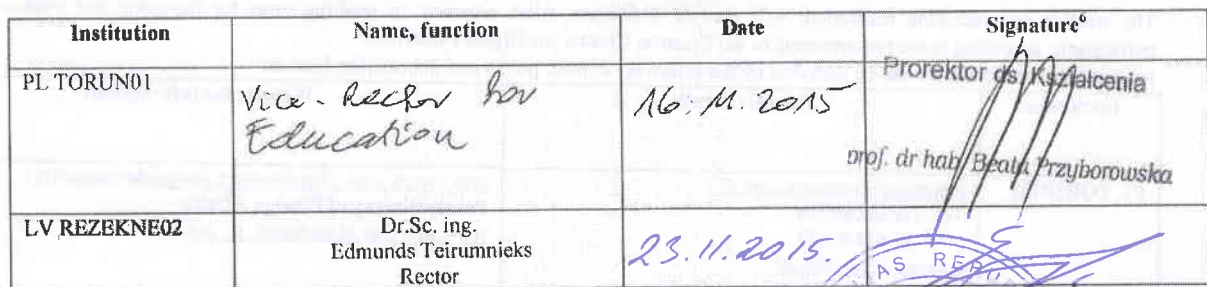 Institution Name, function Date Signature⁶
PL TORUN01
Vice-Rector for
Education
16.11.2015
Prorektor ds. Kształcenia
prof. dr hab. Beata Przyborowska
LV REZEKNE02
Dr.Sc. ing.
Edmunds Teirumnieks
Rector
23.11.2015.
AS REPU